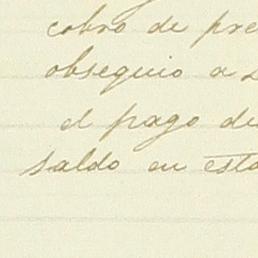 cobro de pre
obsequio a
el pago de
saldo en esta